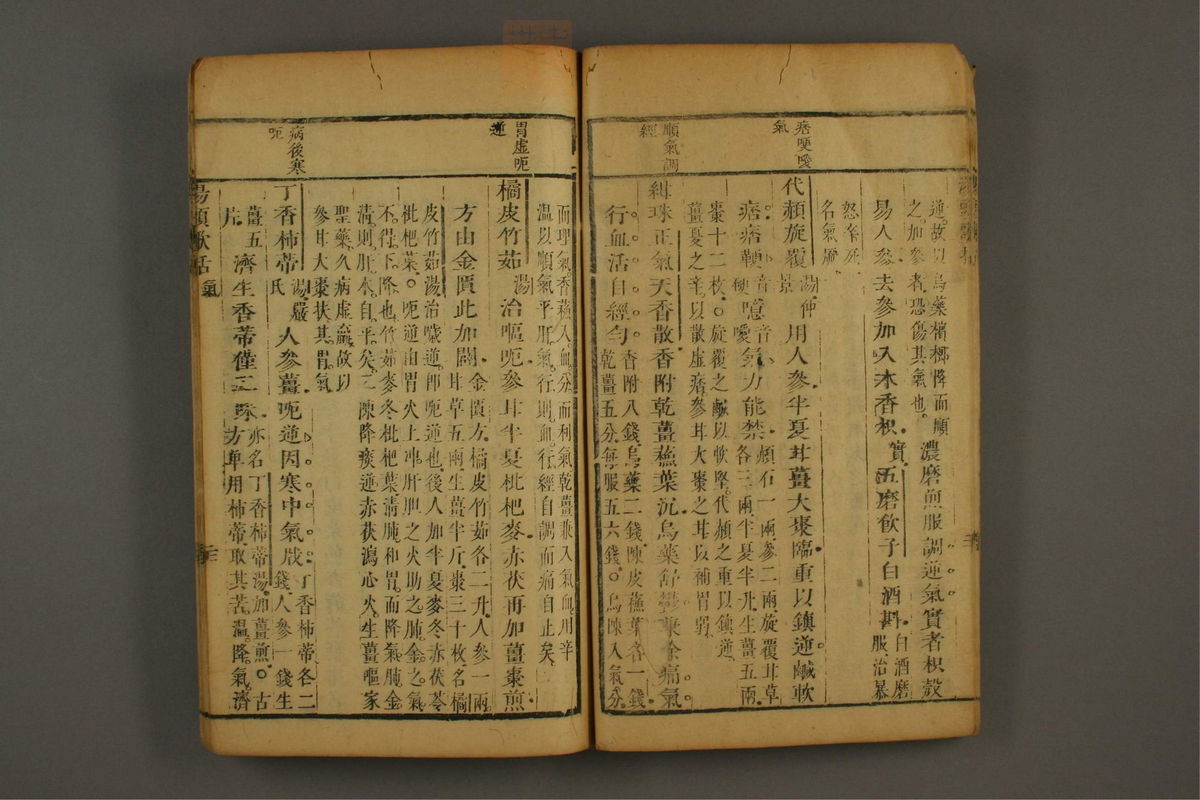 痞噯噯
氣
順氣調
經
逆故以烏藥檳榔降而順
之加參者恐傷其氣也
濃磨煎服調逆氣實者枳殼
易人參去參加入木香枳實五磨飲子白酒斟
白酒磨
服治暴
怒卒死
名氣厥
代赭旋覆湯仲景用人參半夏甘薑大棗臨重以鎮逆鹹軟
痞痞鞕音硬噫音噯氣力能禁
赭石一兩參二兩旋覆甘草
各三兩半夏半升生薑五兩
棗十二枚○旋覆之鹹以軟堅代赭之重以鎮逆
薑夏之辛以散虛痞參甘大棗之甘以補胃弱
紺珠正氣天香散香附乾薑蘇葉沉烏藥舒鬱兼除痛氣
行血活自經勻
香附八錢烏藥二錢陳皮蘇葉各一錢
乾薑五分每服五六錢○烏陳入氣分
胃虛呃
逆
病後寒
呃
而理氣香蘇入血分而利氣乾薑兼入氣血用辛
溫以順氣平肝氣行則血行經自調而痛自止矣
橘皮竹茹湯治嘔呃參甘半夏枇杷麥赤茯再加薑棗煎
方由金匱此加闢
金匱方橘皮竹茹各二升人參一兩
甘草五兩生薑半斤棗三十枚名橘
皮竹茹湯治噦逆即呃逆也後人加半夏麥冬赤茯苓
枇杷葉○呃逆由胃火上冲肝胆之火助之肺金之氣
不得下降也竹茹麥冬枇杷葉清肺和胃而降氣肺金
清則肝木自平矣二陳降痰逆赤茯瀉心火生薑嘔家
聖藥久病虛羸故以
參甘大棗扶其胃氣
丁香柿蒂湯嚴氏人參薑呃逆因寒中氣戕
丁香柿蒂各二
錢人參一錢生
薑五
片
濟生香蒂僅二味
亦名丁香柿蒂湯加薑煎○古
方單用柿蒂取其苦溫降氣濟
湯頭歌括
氣
三